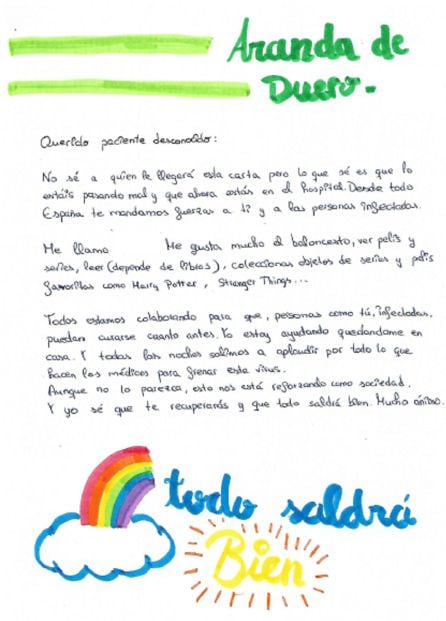 Aranda de
Duero.
Querido paciente desconocido:
No sé a quien le llegará esta carta pero lo que sé es que lo
estáis pasando mal y que ahora estás en el hospital. Desde todo
España te mandamos fuerzas a ti y a las personas infectadas.
Me llamo Me gusta mucho el baloncesto, ver pelis y
series, leer (depende de libros), coleccionar objetos de series y pelis
favoritas como Harry Potter, Stranger Things...
Todos estamos colaborando para que, personas como tú, infectadas,
puedan curarse cuanto antes. Yo estoy ayudando quedandome en
casa. Y todas las noches salimos a aplaudir por todo lo que
hacen los médicos para frenar este virus.
Aunque no lo parezca, esto nos está reforzando como sociedad.
Y yo sé que te recuperarás y que todo saldrá bien. Mucho ánimo.
todo saldrá
Bien